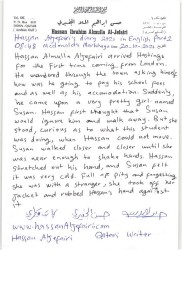 حسن ابراهيم الملا الجفيري
Hassan Ibrahim Almulla Al-Jefairi
Hassan Aljefairi's diary 2021 in English Part 2
Hassan Almulla Aljefairi arrived Hastings
For the first time coming from London.
He wandered through the town asking himself
how was he going to pay his school fees
and as well as his accomodation. Suddenly,
he came upon a very pretty girl named
Susan. Hassan first thought that Susan
would ignore him and walk away. But she
stood, curious as to what this student
was doing, when Hassan could not move.
Susan walked closer and closer until she
was near enough to shake hands. Hassan
stretched out his hand, and Susan felt
it was very cold. Full of pity and forgetting
she was with a stranger, she took off her
jacket and rubbed Hassan's hand against
it.
www.hassanAljefairi.com
Hassan Aljefairi Qatari Writer